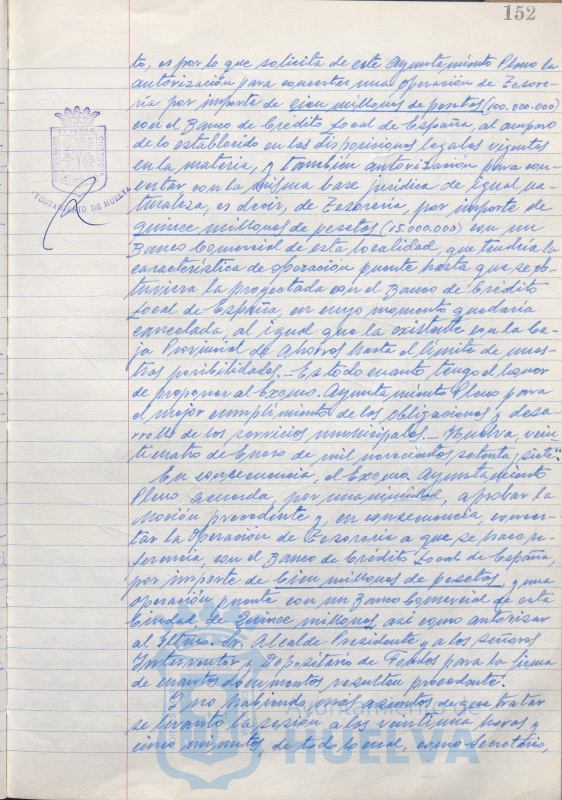 152
to, es por lo que solicita de este Ayuntamiento Pleno la
autorización para concertar una operación de Tesore-
ría por importe de cien millones de pesetas (100.000.000)
con el Banco de Crédito Local de España, al amparo
de lo establecido en las disposiciones legales vigentes
en la materia, y también autorización para con-
certar con la misma base jurídica de igual na-
turaleza, es decir, de Tesorería, por importe de
quince millones de pesetas (15.000.000) con un
Banco Comercial de esta localidad, que tendría la
característica de operación puente hasta que se ob-
tuviera la proyectada con el Banco de Crédito
Local de España, en cuyo momento quedaría
cancelada, al igual que la existente con la Ca-
ja Provincial de Ahorros hasta el límite de nues-
tras posibilidades.- Es todo cuanto tengo el honor
de proponer al Excmo. Ayuntamiento Pleno para
el mejor cumplimiento de las obligaciones y desa-
rrollo de los servicios municipales.- Huelva, vein-
ticuatro de Enero de mil novecientos setenta y siete".
En consecuencia, el Excmo. Ayuntamiento
Pleno acuerda, por unanimidad, aprobar la
Moción precedente y, en consecuencia, concer-
tar la Operación de Tesorería a que se hace re-
ferencia, con el Banco de Crédito Local de España,
por importe de Cien millones de pesetas, y una
operación puente con un Banco Comercial de esta
Ciudad, de Quince millones, así como autorizar
al Iltmo. Sr. Alcalde Presidente y a los señores
Interventor y Depositario de Fondos para la firma
de cuantos documentos resulten procedente.
Y no habiendo más asuntos de que tratar
se levantó la sesión a las veintiuna horas y
cinco minutos, de todo lo cual, como Secretario,
AYUNTAMIENTO DE HUELVA
Ayuntamiento de
HUELVA